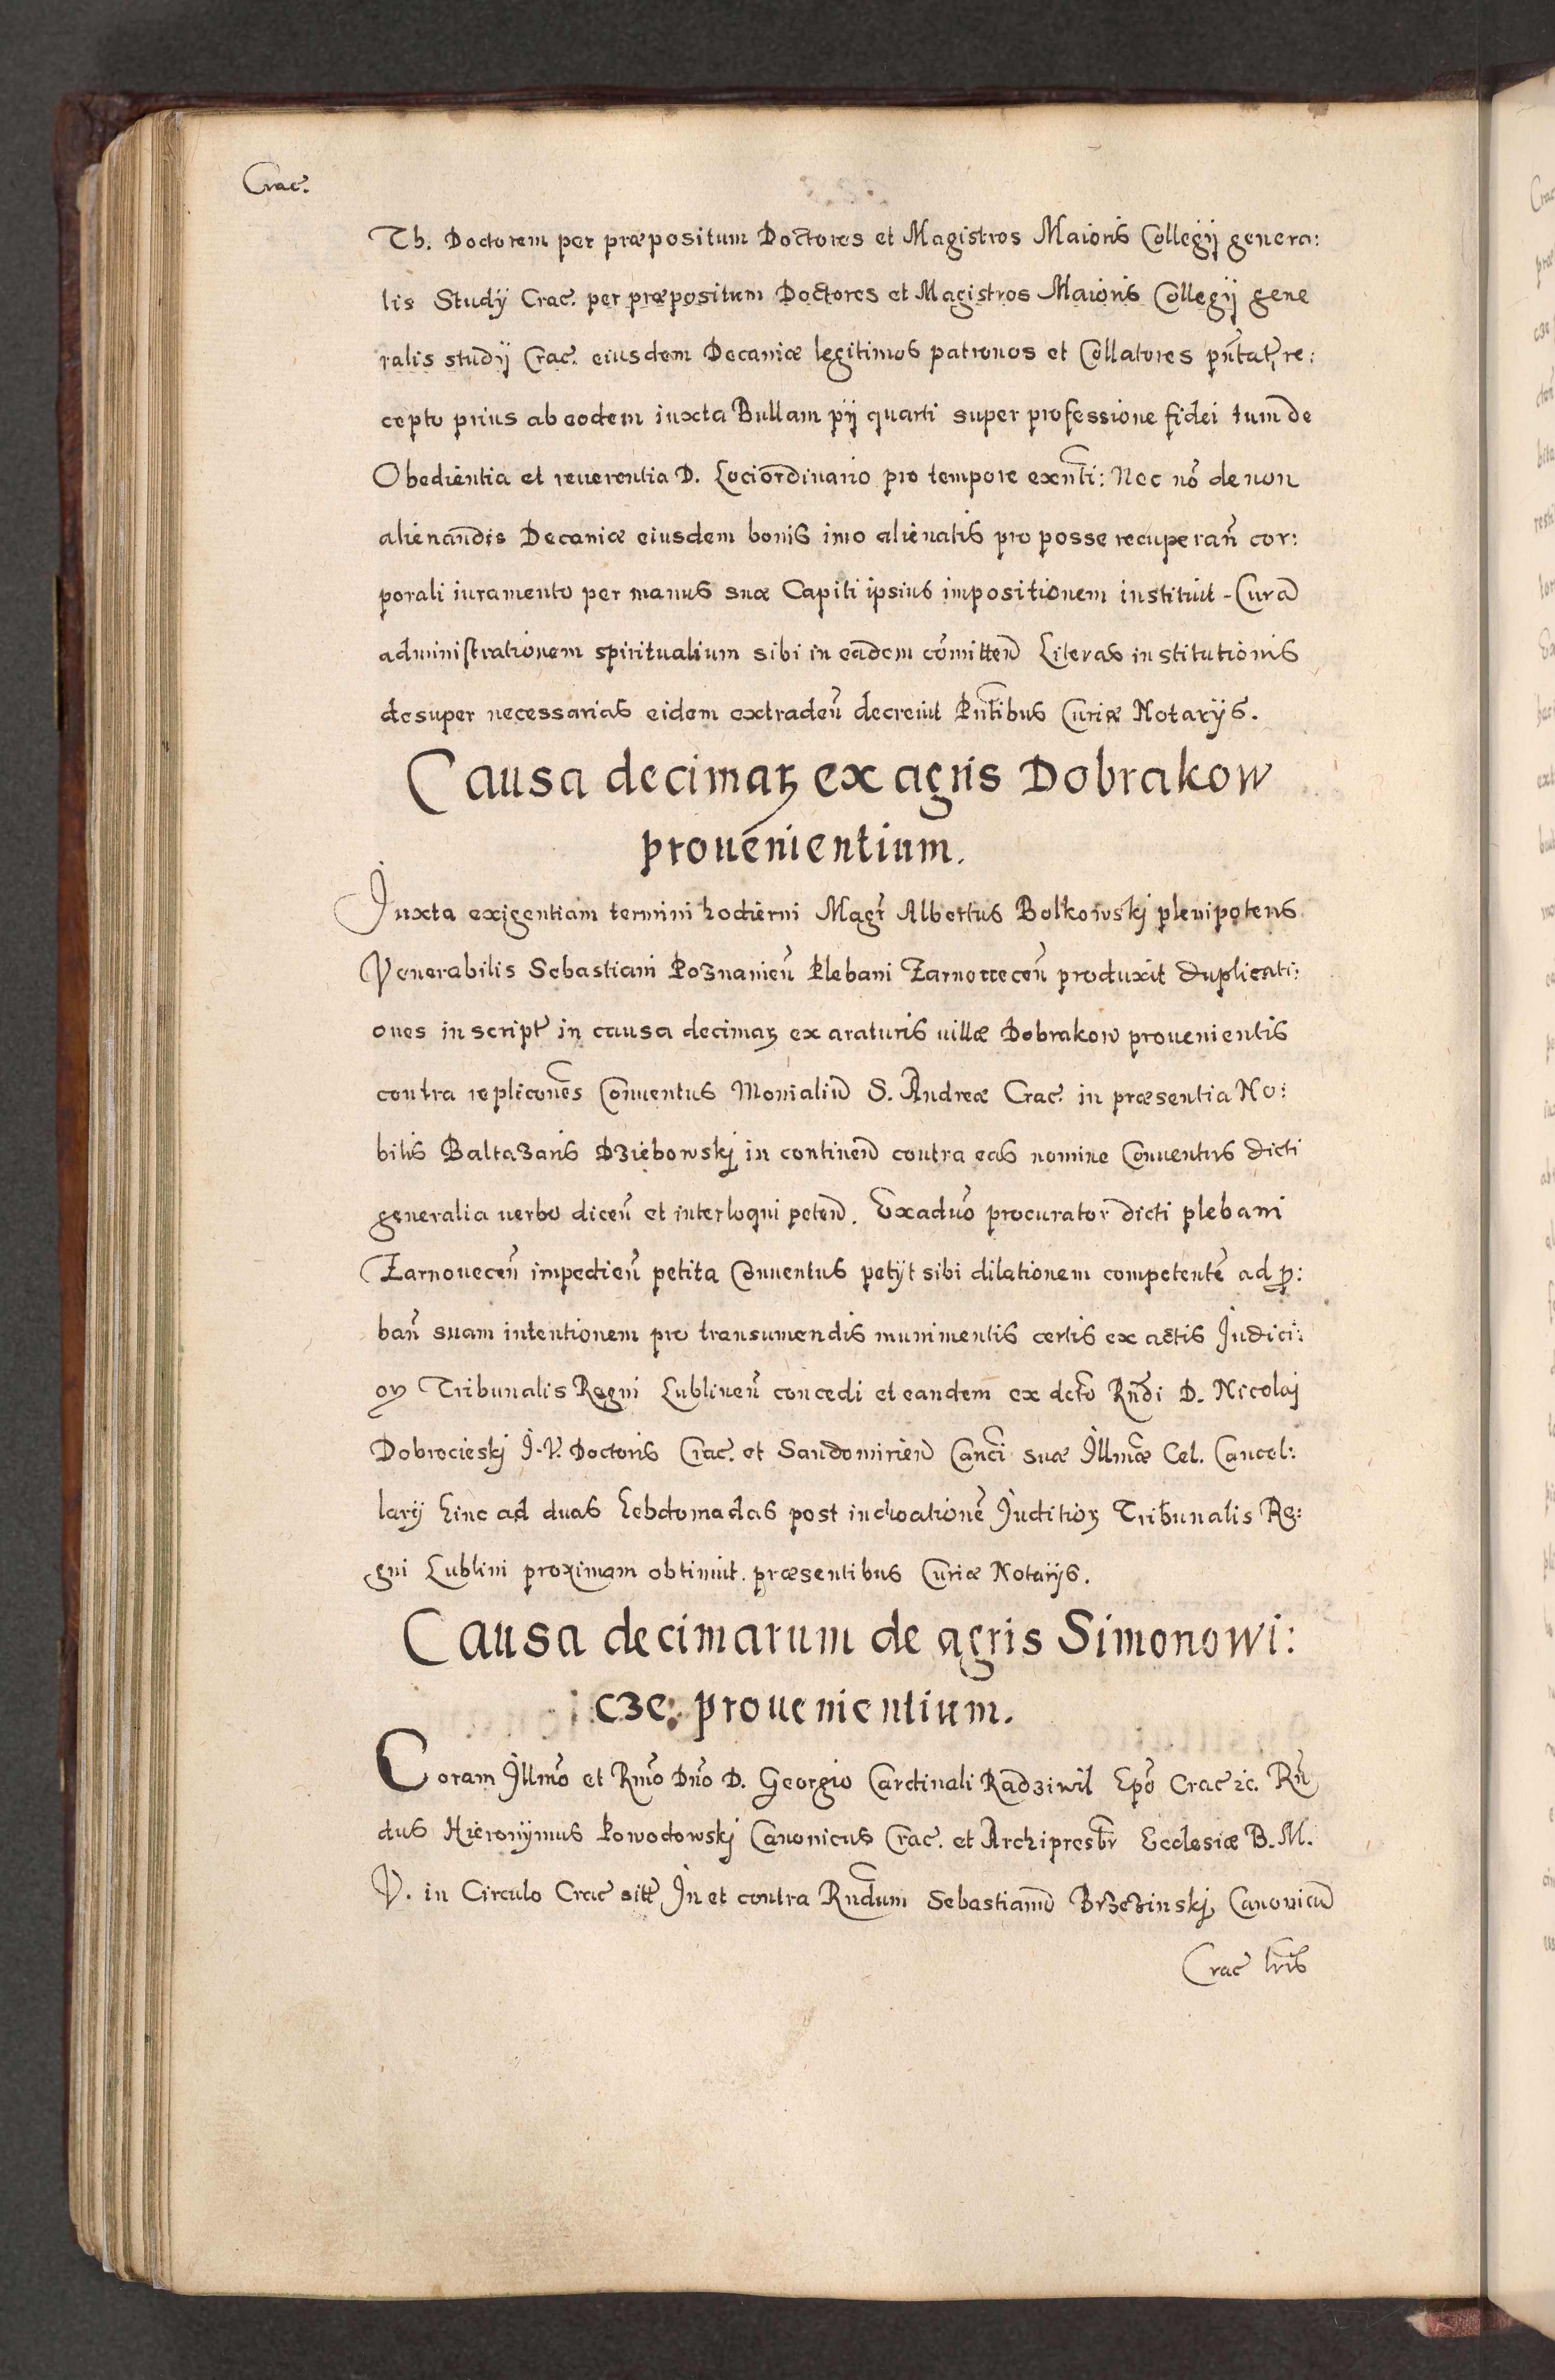 Crac.
Th. Doctorem per præpositum Doctores et Magistros Maioris Collegij genera:
lis Studij Crac. per præpositum Doctores et Magistros Maioris Collegij gene
ralis studij Crac. eiusdem Decaniæ legitimos patronos et Collatores pñtat, re:
cepto prius ab eodem iuxta Bullam pij quarti super professione fidei tum de
Obedientia et reuerentia D. Loci ordinario pro tempore exñti: Nec nõ de non
alienandis Decaniæ eiusdem bonis imo alienatis pro posse recuperañ cor:
porali iuramento per manus suæ Capiti ipsius impositionem instituit - Curã
administrationem spiritualium sibi in eadem cõmitteñ Literas institutionis
desuper necessarias eidem extradeñ decreuit Pñtibus Curiæ Notarijs.
Causa decimaꝝ ex agris Dobrakow
prouenientium.
Juxta exigentiam termini hodierni Magr Albertus Bolkowskj plenipotens
Venerabilis Sebastiani Poznanieñ Plebani Zarnoueceñ produxit duplicati:
ones in script in causa decimaꝝ ex araturis uillæ Dobrakow prouenientis
contra replicoñes Conuentus Monialiũ S. Andreæ Crac. in præsentia No:
bilis Baltazaris Dziebowskj in contineñ contra eas nomine Conuentus dicti
generalia uerbo diceñ et interloqui peteñ. Exaduõ procurator dicti plebani
Zarnoueceñ impedieñ petita Conuentus petijt sibi dilationem competentẽ ad ꝓ:
bañ suam intentionem pro transumendis munimentis certis ex actis Judici:
oꝝ Tribunalis Regni Lublineñ concedi et eandem ex dcto Rñdi D. Nicolaj
Dobrocieskj J. V. Doctoris Crac. et Sandomirieñ Canci suæ Illmæ Cel. Cancel:
larij hinc ad duas hebdomadas post inchoationẽ Juditioꝝ Tribunalis Re:
gni Lublini proximam obtinuit. præsentibus Curiæ Notarijs.
Causa decimarum de agris Simonowi:
cze: prouenientium.
Coram Illmõ et Rmõ Dñõ D. Georgio Cardinali Radziwil Epõ Crac ꝛc. Rñ
dus Hieronymus Powodowskj Canonicus Crac. et Archipresbr Ecclesiæ B. M.
V. in Circulo Crac sitæ In et contra Rñdum Sebastianũ Brzezinskj Canonicũ
Crac lris